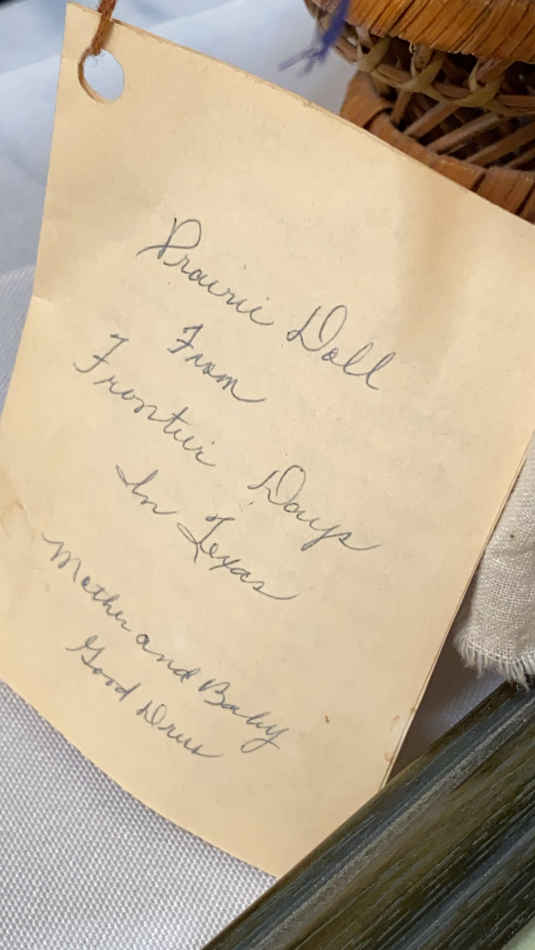 Prairie Doll
From
Frontier Days
In Texas
Mother and Baby
Good Drus